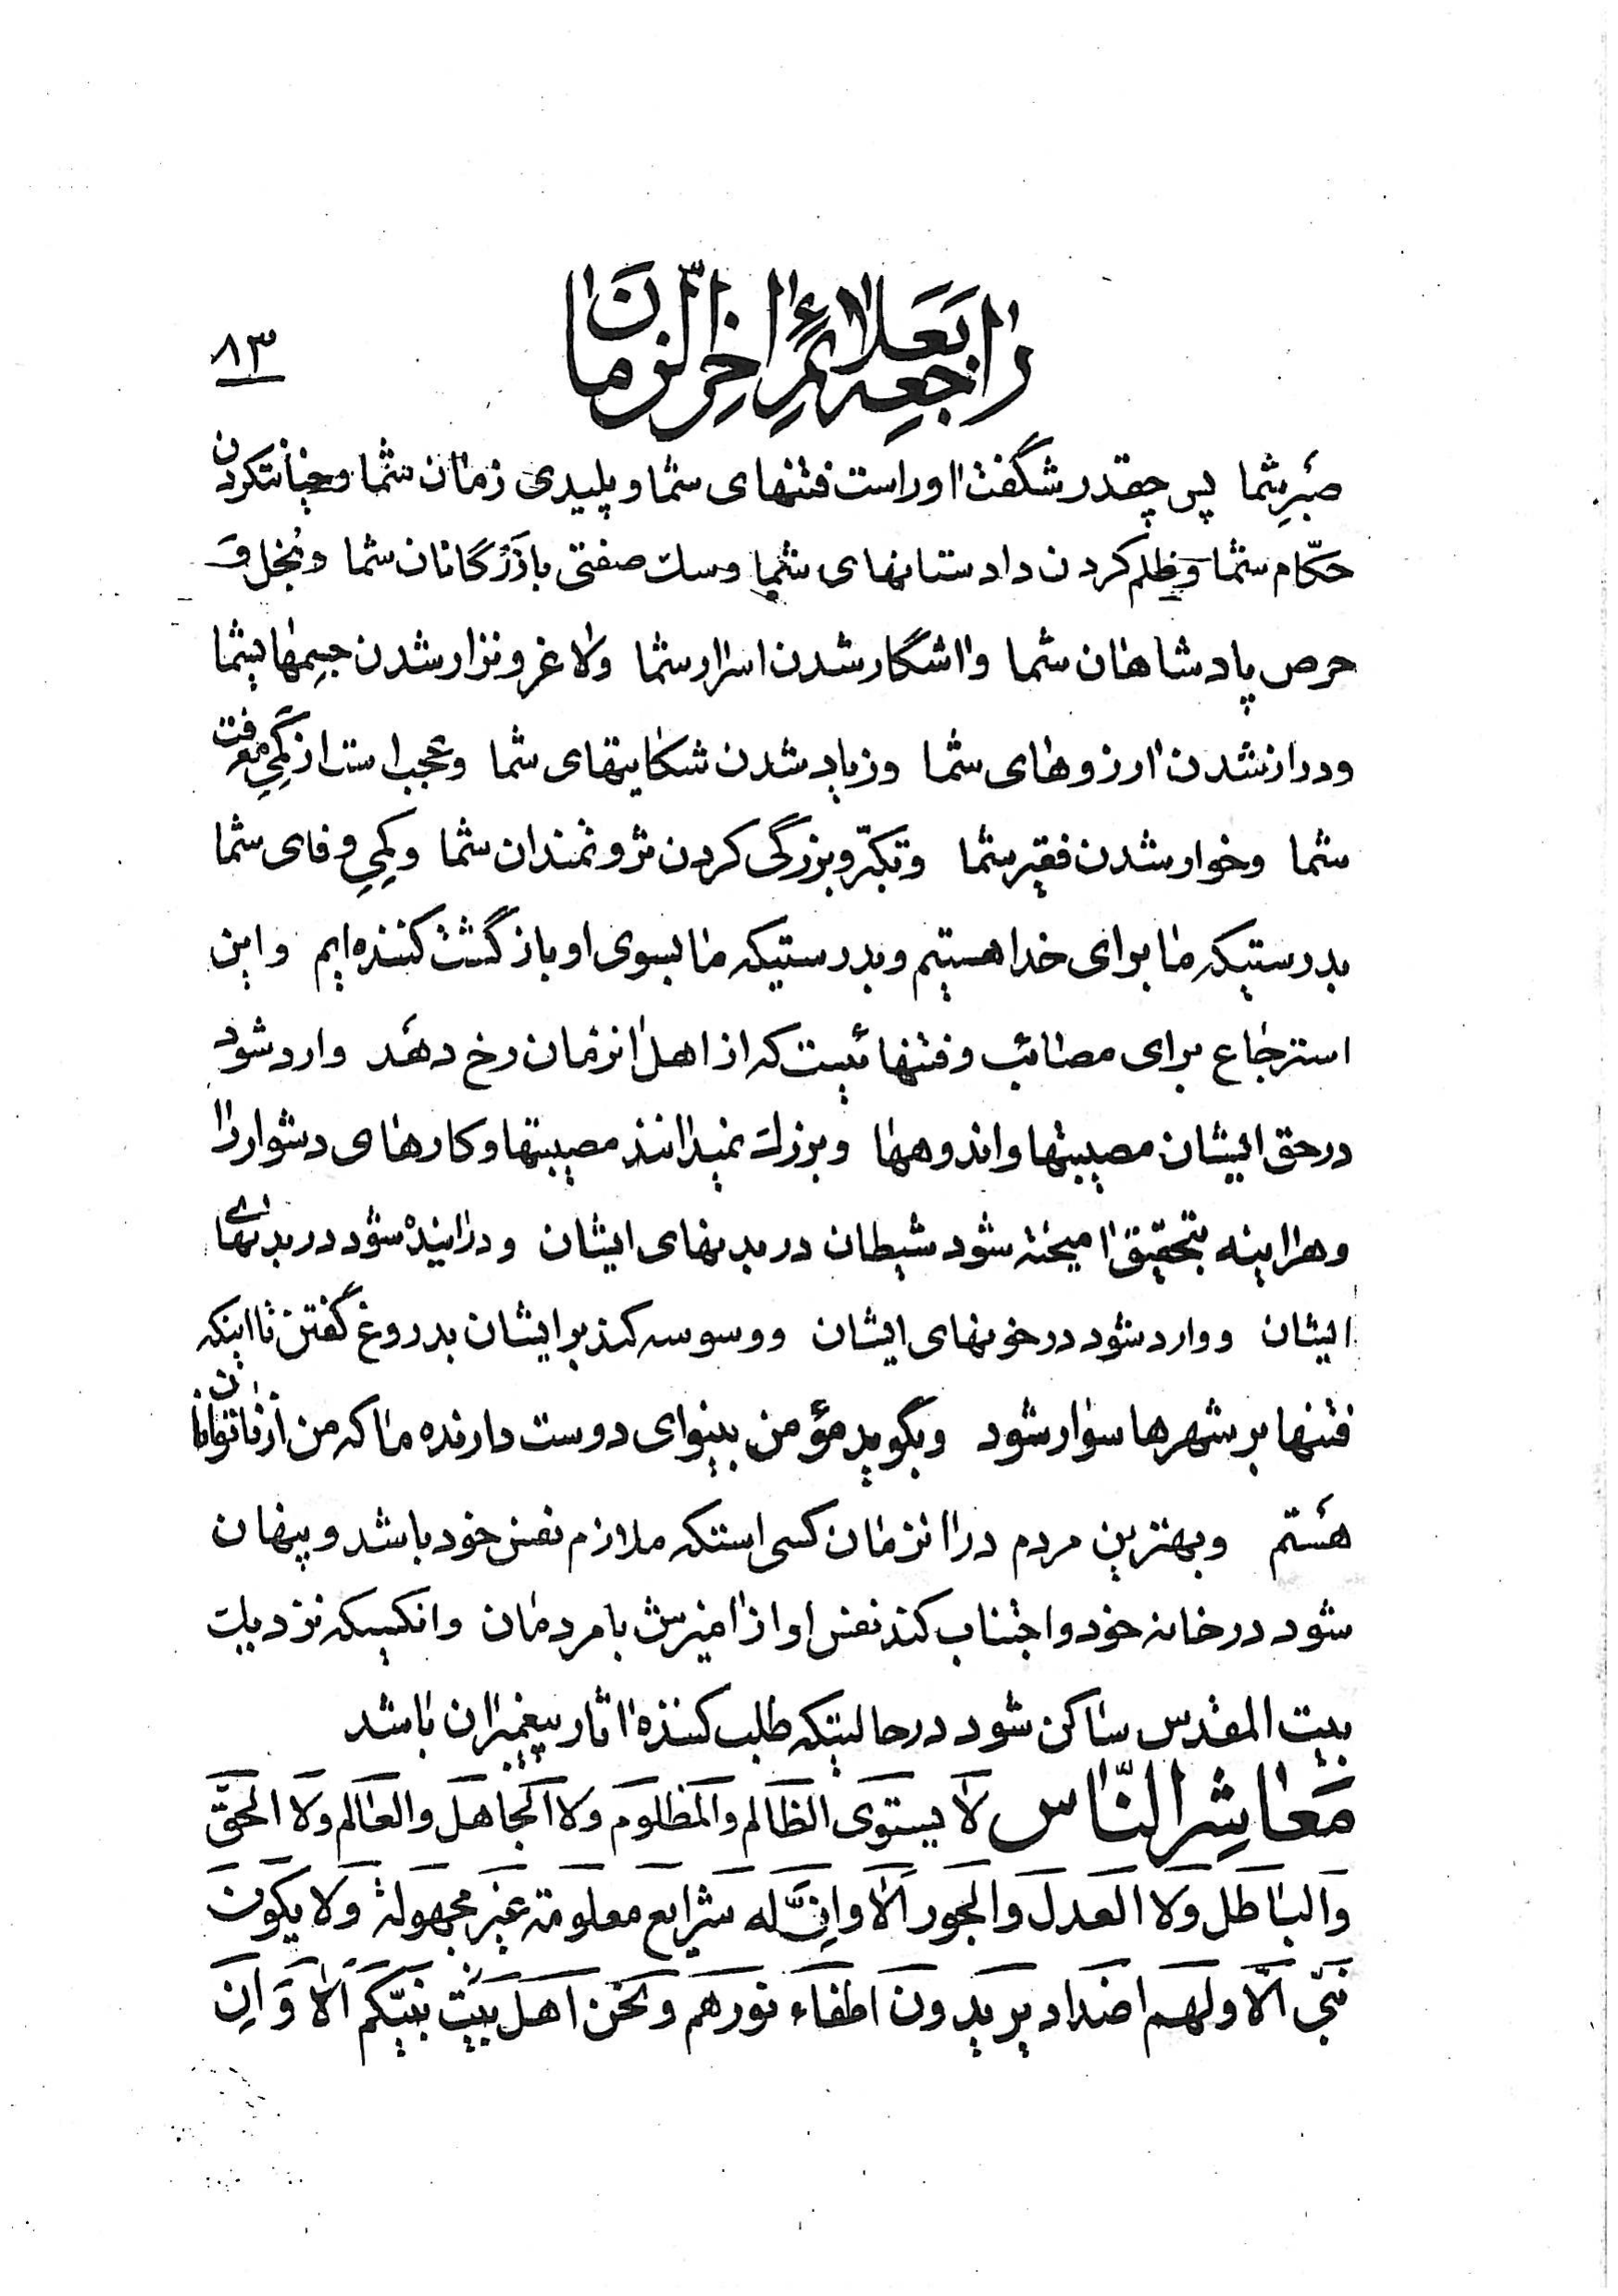 راجعه بعلائم اٰخر الزّمان
۸۳
صبر شما پس چقدر شگفت اٰور است فتنهای شما و پلیدی زمان شما و خیانتکردن
حکّام شما و ظلم کردن دادستانهای شما و سك صفتی بازرگانان شما و بخل و
حرص پادشاهان شما و اٰشکار شدن اسرار شما و لاغر و نزار شدن جسمهایشما
و دراز شدن اٰرزوهای شما و زیاد شدن شکایتهای شما و عجب است از کمی معرفت
شما و خوار شدن فقیر شما و تکبّر و بزرگی کردن ثروتمندان شما و کمی وفای شما
بدرستیکه ما برای خدا هستیم و بدرستیکه ما بسوی او بازگشت کننده‌ایم و این
استرجاع برای مصائب و فتنهائیست که از اهل اٰنزمان رخ دهد وارد شود
در حق ایشان مصیبتها و اندوهها و بزرك نمیدانند مصیبتها و کارهای دشوار را
و هراینه بتحقیق اٰمیخته شود شیطان در بدنهای ایشان و دراٰینده شود در بدنهای
ایشان و وارد شود در خونهای ایشان و وسوسه کند بر ایشان بدروغ گفتن تا اینکه
فتنها بر شهرها سوار شود و بگوید مؤمن بینوای دوست دارنده ما که من از ناتوانان
هستم و بهترین مردم در اٰنزمان کسی استکه ملازم نفس خود باشد و پنهان
شود در خانه خود و اجتناب کند نفس او از اٰمیزش با مردمان و انکسیکه نزدیك
بیت المقدس ساکن شود در حالیتکه طلب کننده اٰثار پیغمبران باشد
مَعاشِر النّاس لا یستوی الظالم والمظلوم ولا الجاهل والعالم ولا الحقّ
والباطل ولا العدل والجور الا وانّ له شرایع معلومة غیر مجهولة ولا یکون
نبیّ الّا ولهم اضداد یریدون اطفاء نورهم ونحن اهل بیت نبیّکم الا وَ اِن